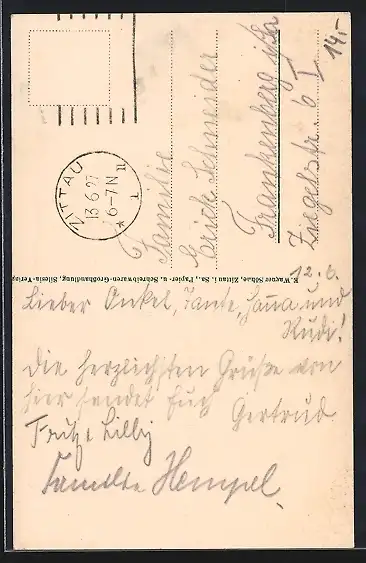 14.-
ZITTAU
13.6.27
6-7N
II
* T
Familie
Erich Schneider
Frankenberg i/Sa
Ziegelstr. 6 I
E. Wagner Söhne, Zittau i. Sa., Papier- u. Schreibwaren-Großhandlung, Silesia-Verlag
12.6.
Lieber Onkel, Tante, Hanna und
Rudi!
Die herzlichsten Grüße von
hier sendet Euch Gertrud
Fritz + Lilly
Familie Hempel